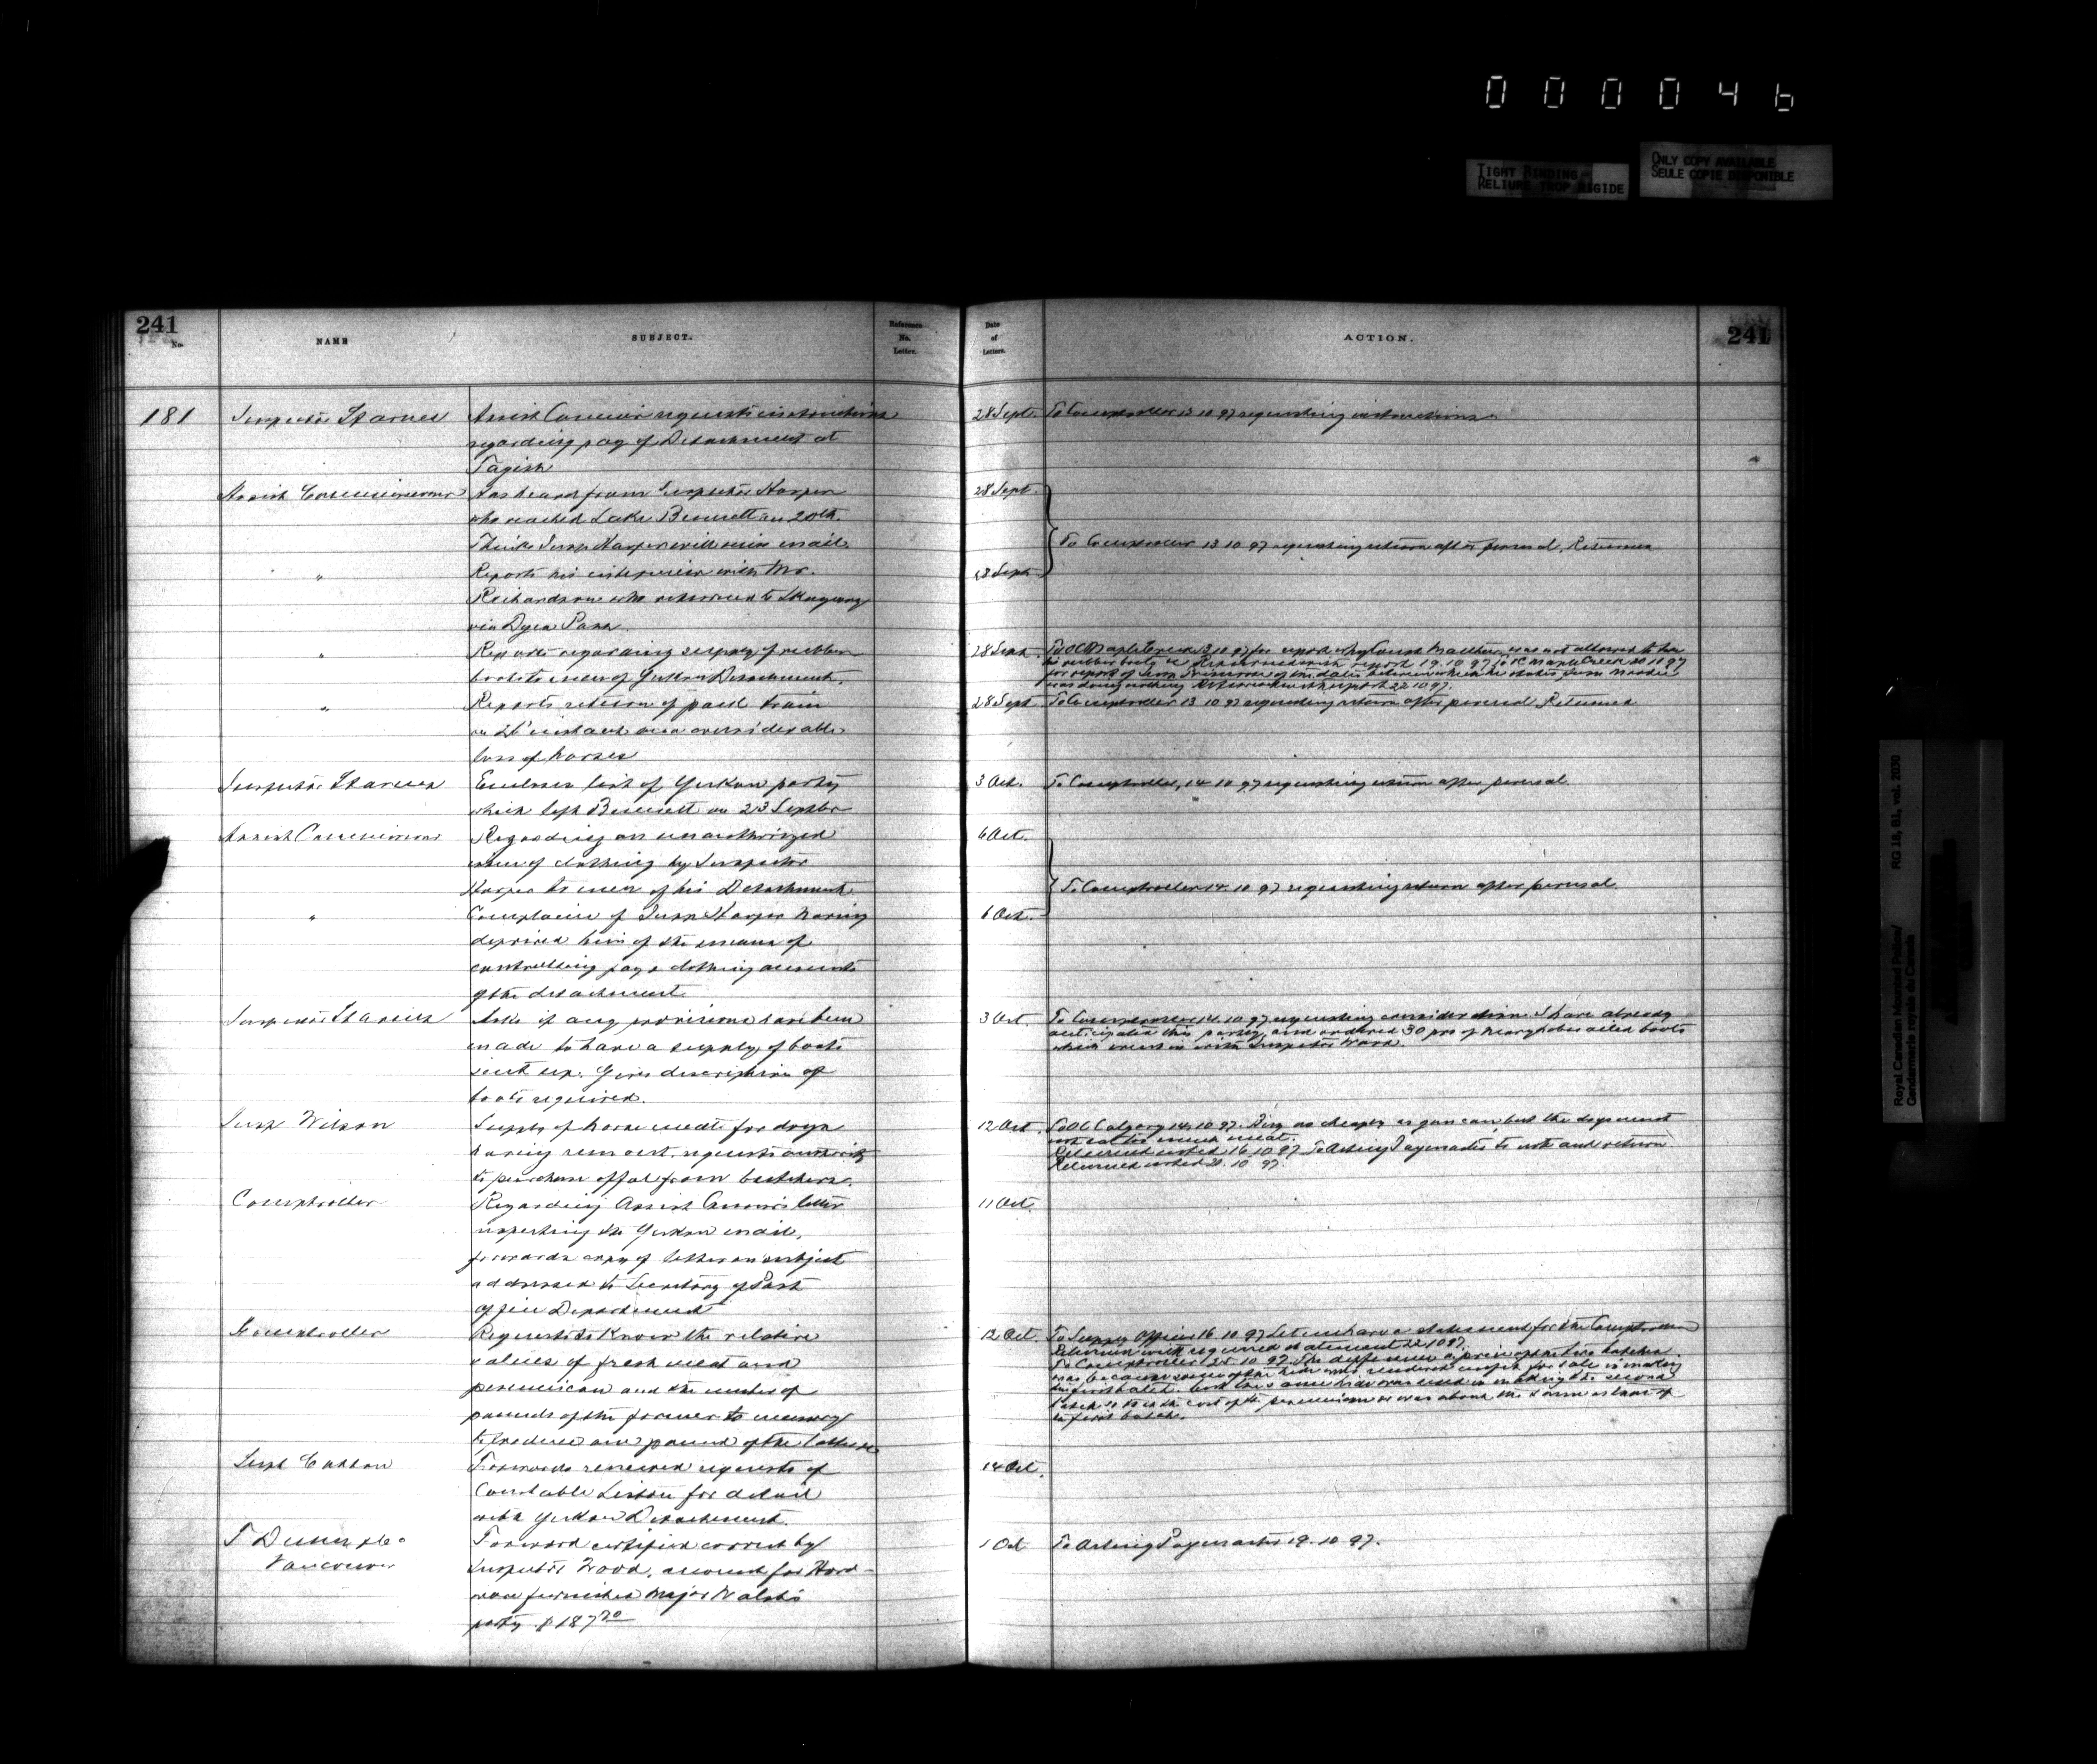 000046
TIGHT BINDING
RELIURE TROP RIGIDE
ONLY COPY AVAILABLE
SEULE COPIE DISPONIBLE
241
No.
NAME
SUBJECT.
Reference
No.
Letter.
Date
of
Letters.
ACTION.
241
181
Inspector Starnes
Assist Commr requests instructions
regarding pay of Detachment at
Tagish
28 Sept.
To Comptroller 13 10 97 requesting instructions
Assist Commissioner
Has heard from Inspector Harper
who reached Lake Bennett on 20th.
Thinks Insp Harper will mail.
28 Sept.
To Comptroller 13 10 97 requesting return after perusal. Returned
"
Reports his interview with Mr.
Richardson who returned to Skagway
via Dyea Pass.
28 Sept
"
Reports regarding supply of rubber
boots to men of Yukon Detachment.
28 Sept.
To OC Maple Creek 13 10 97 for report why Const was not allowed to have
his rubber boots. Returned with report 19.10 97 To OC Maple Creek 20 10 97
for report of dates between which he states
was doing nothing Returned with report 22 10 97.
"
Reports return of pack train
on 26th instant with considerable
loss of horses
28 Sept
To Comptroller 13 10 97 requesting return after perusal Returned
Inspector Starnes
Encloses list of Yukon party
which left Bennett on 23 Septbr
3 Oct.
To Comptroller, 14 10 97 requesting return after perusal.
Assist Commissioner
Regarding an unauthorized
issue of clothing by Inspector
Harper to men of his Detachment
6 Oct.
To Comptroller 14. 10 97 requesting return after perusal
"
Complains of Insp Harper having
deprived him of the means of
controlling pay & clothing accounts
of the detachment
6 Oct.
Inspector Starnes
Asks if any provisions have been
made to have a supply of boots
sent up. Gives description of
boots required.
3 Oct.
To Comptroller 14. 10 97 requesting consideration. I have already
anticipated this partly, and ordered 30 prs of heavy oiled boots
which went in with Inspector Wood.
Insp Wilson
Supply of horse meat for dogs
having run out, requests authority
to purchase offal from butchers.
12 Oct.
To OC Calgary 14. 10 97. Buy as cheaply as you can, but the dogs must
not eat too much meat.
Returned noted 16 10 97 To Acting Paymaster to note and return
Returned noted 20. 10 97.
Comptroller
Regarding Assist Commr's letter
respecting the Yukon mail,
forwards copy of letter on subject
addressed to Secretary of Post
office Department
11 Oct.
Comptroller
Requests to know the relative
values of fresh meat and
pemmican and the number of
pounds of the former to necessary
to produce one pound of the latter
12 Oct.
To Supply Officer 16 10 97 Let me have a statement for the Comptroller
Returned with required statement 22 10 97.
To Comptroller 25 10 97. The difference in price of the two batches
was because some of the hide was rendered unfit for sale in making
the first batch, but the same hide was used in making the second
batch so the cost of the pemmican was about the same as that of
the first batch.
Supt Cotton
Forwards renewed requests of
Constable for detail
with Yukon Detachment.
14 Oct.
T Dunn & Co
Vancouver
Forward certified correct by
Inspector Wood, account for Hard-
ware furnished Major Walsh's
party $187 20
1 Oct
To Acting Paymaster 19. 10 97.
Royal Canadian Mounted Police/
Gendarmerie royale du Canada
RG 18, B1, vol. 2030